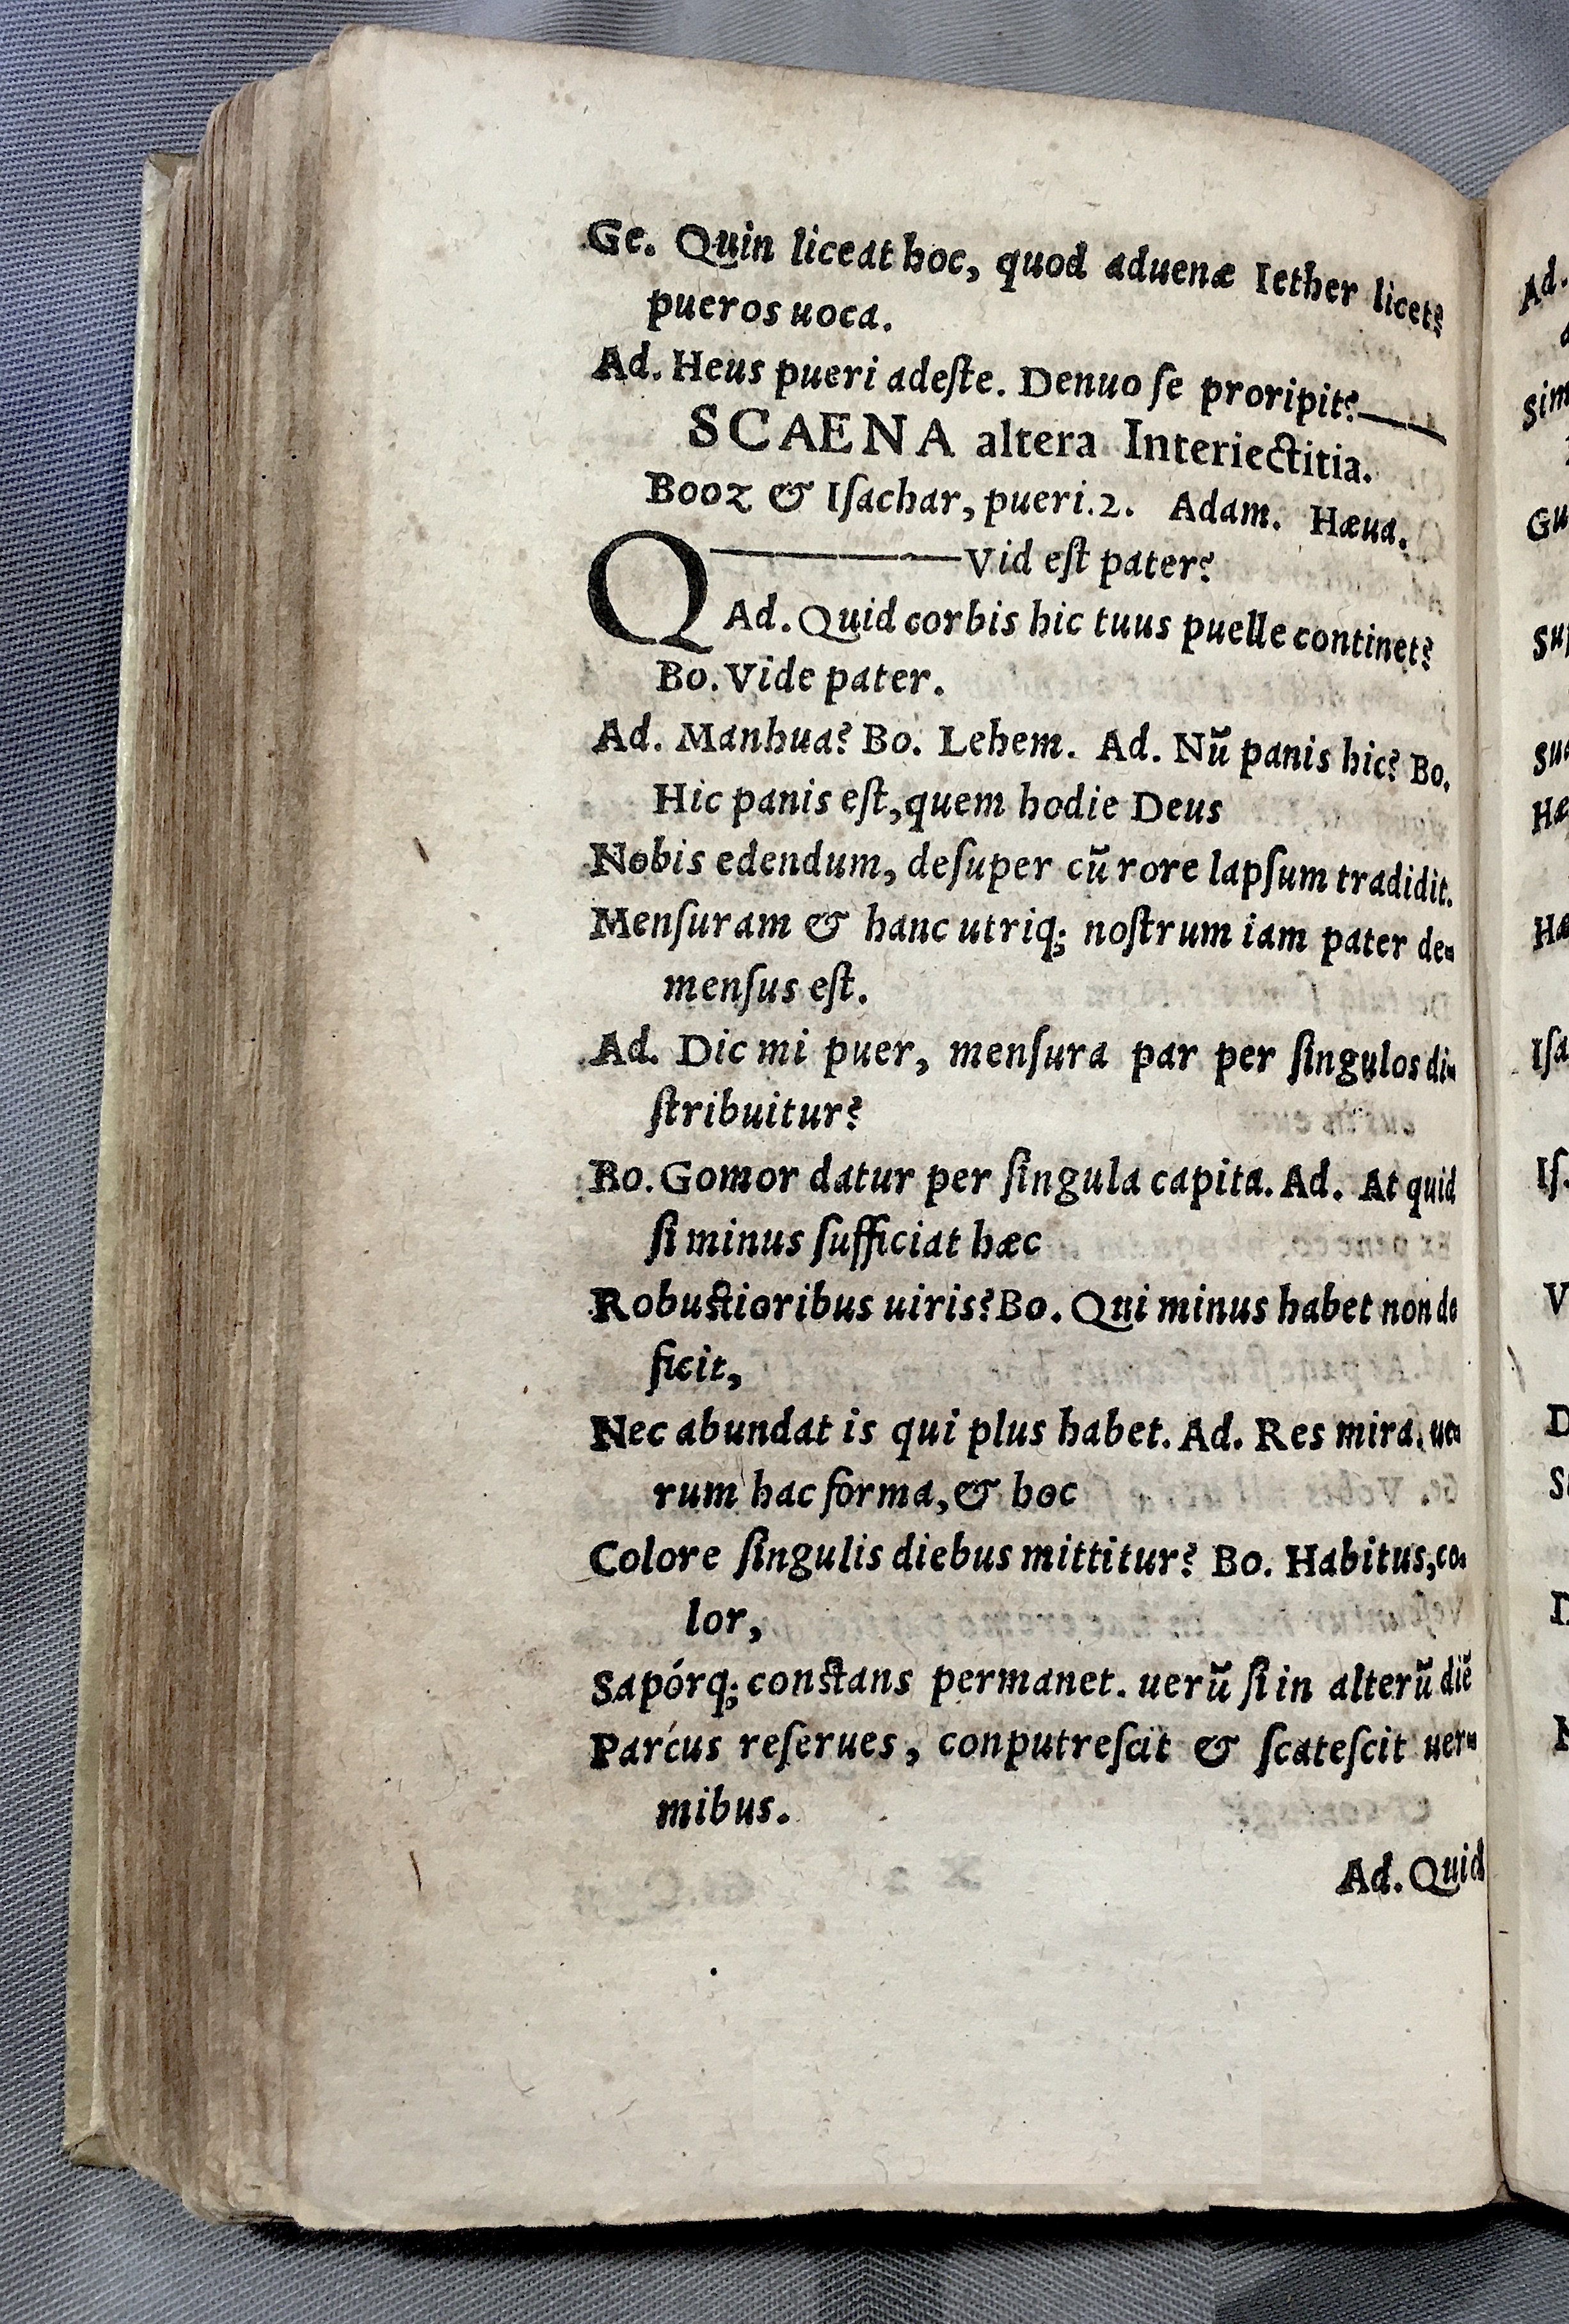 Ge. Quin liceat hoc, quod aduenæ Iether licet?
pueros uoca.
Ad. Heus pueri adeſte. Denuo ſe proripit?—
SCAENA altera Interiectitia.
Booz & Iſachar, pueri.2. Adam. Hæua.
Q——Vid eſt pater?
Ad. Quid corbis hic tuus puelle continet?
Bo. Vide pater.
Ad. Manhua? Bo. Lehem. Ad. Nū panis hic? Bo.
Hic panis eſt, quem hodie Deus
Nobis edendum, deſuper cū rore lapſum tradidit.
Menſuram & hanc utriq; noſtrum iam pater de-
menſus eſt.
Ad. Dic mi puer, menſura par per ſingulos di-
ſtribuitur?
Bo. Gomor datur per ſingula capita. Ad. At quid
ſi minus ſufficiat hæc
Robuſtioribus uiris? Bo. Qui minus habet non de
ficit,
Nec abundat is qui plus habet. Ad. Res mira. ue-
rum hac forma, & hoc
Colore ſingulis diebus mittitur? Bo. Habitus, co-
lor,
Sapórq; conſtans permanet. uerū ſi in alterū diē
Parcus reſerues, conputreſcit & ſcateſcit uer-
mibus.
Ad. Quid
Ad.
Sim
Gu
Sup
Suc
Hæ
Iſa
Iſ.
V
D